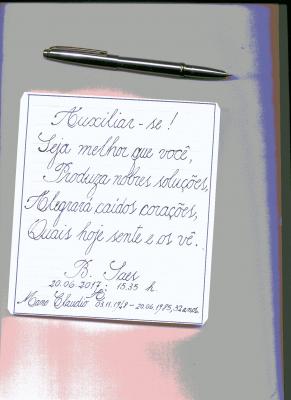 Auxiliar-se!
Seja melhor que você,
Produza nobres soluções,
Alegrará caídos corações,
Quais hoje sente e os vê.
B. Saes
20.06.2017; 15.35 h.
Mano Claudio 03.11.1948 - 20.06.1985, 32 anos